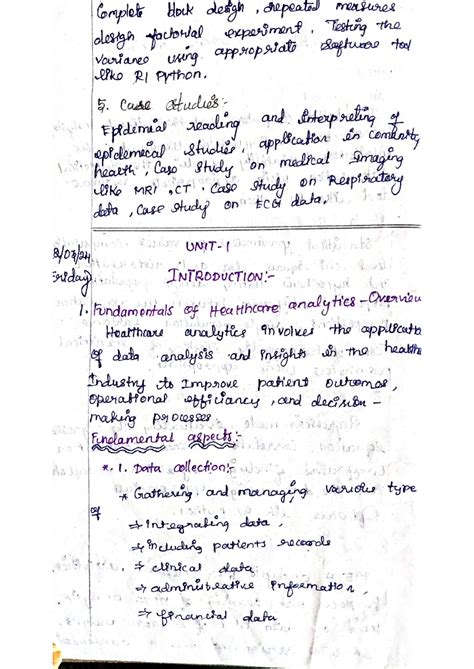 Complete block design, repeated measures
design factorial experiment, Testing the
variance using appropriate Software tool
like R1 Python.
5. Case Studies:-
Epidemial reading and Interpreting of
epidemical studies, application in comunity
health, Case Study on medical Imaging
like MRI, CT. Case study on Respiratory
data, Case study on ECG data.
UNIT-1
8/03/24
(Friday)
INTRODUCTION:-
1. Fundamentals of Healthcare analytics - Overview
Healthcare analytics involves the applicatio
of data analysis and insights in the healthc
Industry to Improve patient outcomes,
operational efficiancy, and decision -
making processes.
Fundamental aspects:-
*. 1. Data collection:-
* Gathering and managing various type
of
⇒ integrating data,
⇒ including patients records
⇒ clinical data
⇒ administrative information,
⇒ financial data